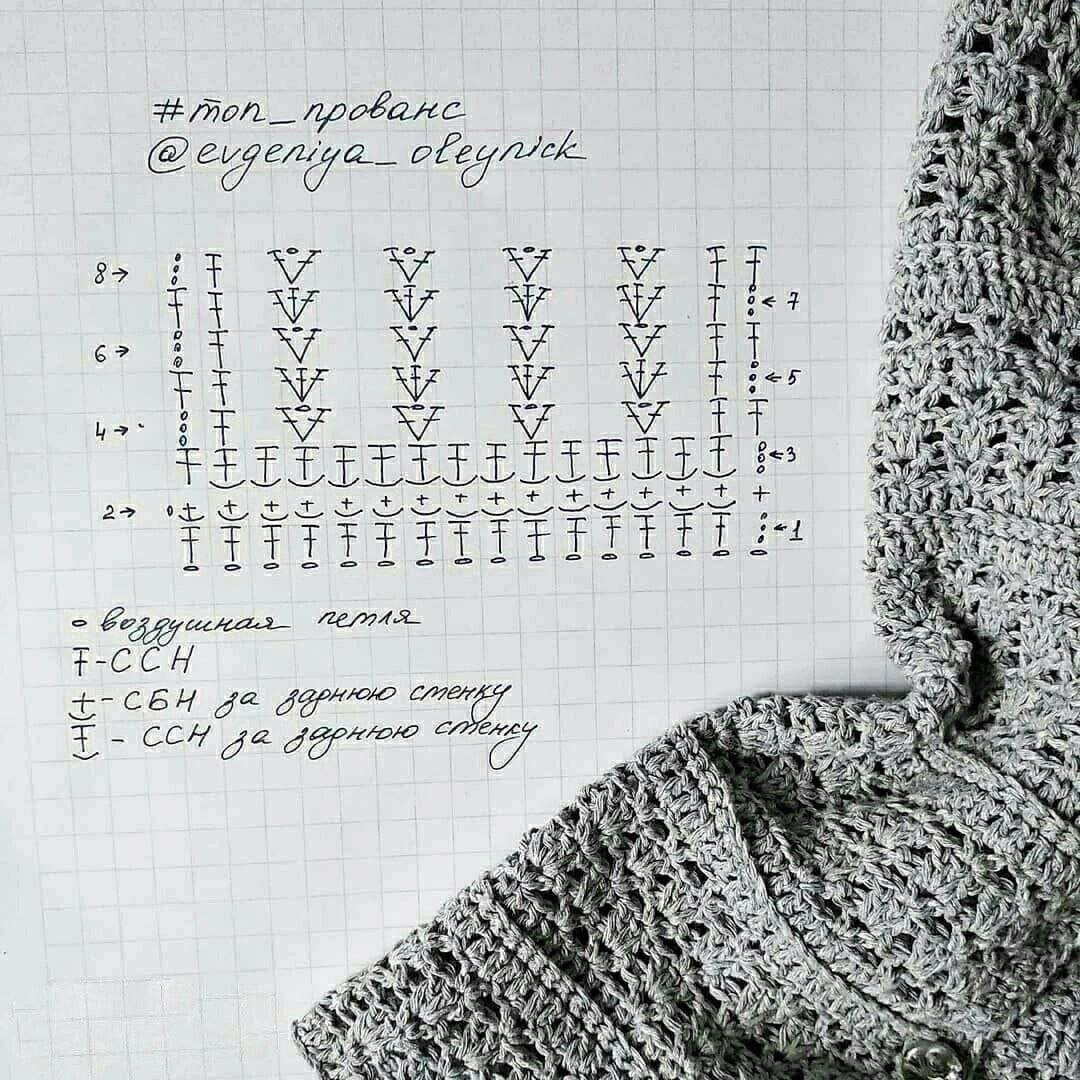 #топ_прованс
@evgeniya_oleynick
8→
←7
6→
←5
4→
←3
2→
←1
воздушная петля
-ССН
-СБН за заднюю стенку
- ССН за заднюю стенку